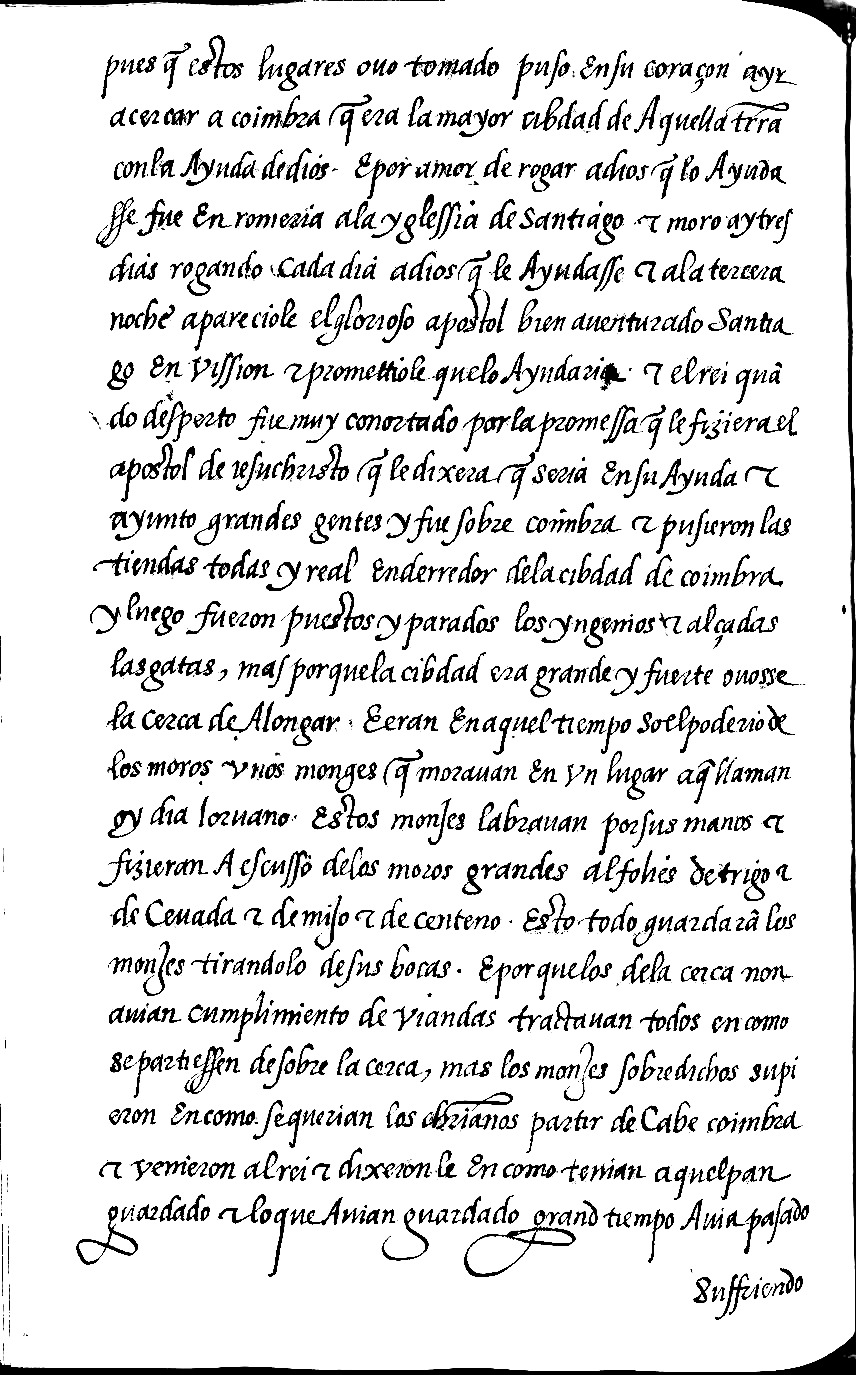 pues q̃ estos lugares ouo tomado puso En su coraçon ayr
acercar a coimbra q̃ era la mayor cibdad de Aquella trr̃a
con la Ayuda de dios. E por amor de rogar a dios q̃ lo Ayuda
sse fue En romeria ala yglessia de Santiago τ moro ay tres
dias rogando Cada dia adios q̃ le Ayudasse τ ala tercera
noche apareciole el glorioso apostol bien auenturado Santia
go En Vission τ promettiole que lo Ayudaria τ el rei quã
do desperto fue muy conortado por la promessa q̃ le fiziera el
apostol de iesuchristo q̃ le dixera q̃ seria En su Ayuda τ
ayunto grandes gentes y fue sobre coimbra τ pusieron las
tiendas todas y real Enderredor dela cibdad de coimbra
y luego fueron puestos y parados los yngenios τ alçadas
las gatas, mas por que la cibdad era grande y fuerte ouosse
la cerca de Alongar. E eran En aquel tiempo So el poderio de
los moros vnos monges q̃ morauan En vn lugar aq̃ llaman
oy dia loruano. Estos monjes labrauan por sus manos τ
fizieran A escusso delos moros grandes alfolies de trigo τ
de Ceuada τ de mijo τ de centeno. Esto todo guardarã los
monjes tirandolo de sus bocas. E por que los dela cerca non
auian cumplimiento de viandas tractauan todos en como
se partiessen de sobre la cerca, mas los monjes sobredichos supi
eron En como se querian los chrĩanos partir de Cabe coimbra
τ venieron al rei τ dixeron le En como tenian aquel pan
guardado τ lo que Auian guardado grand tiempo Auia pasado
Suffriendo